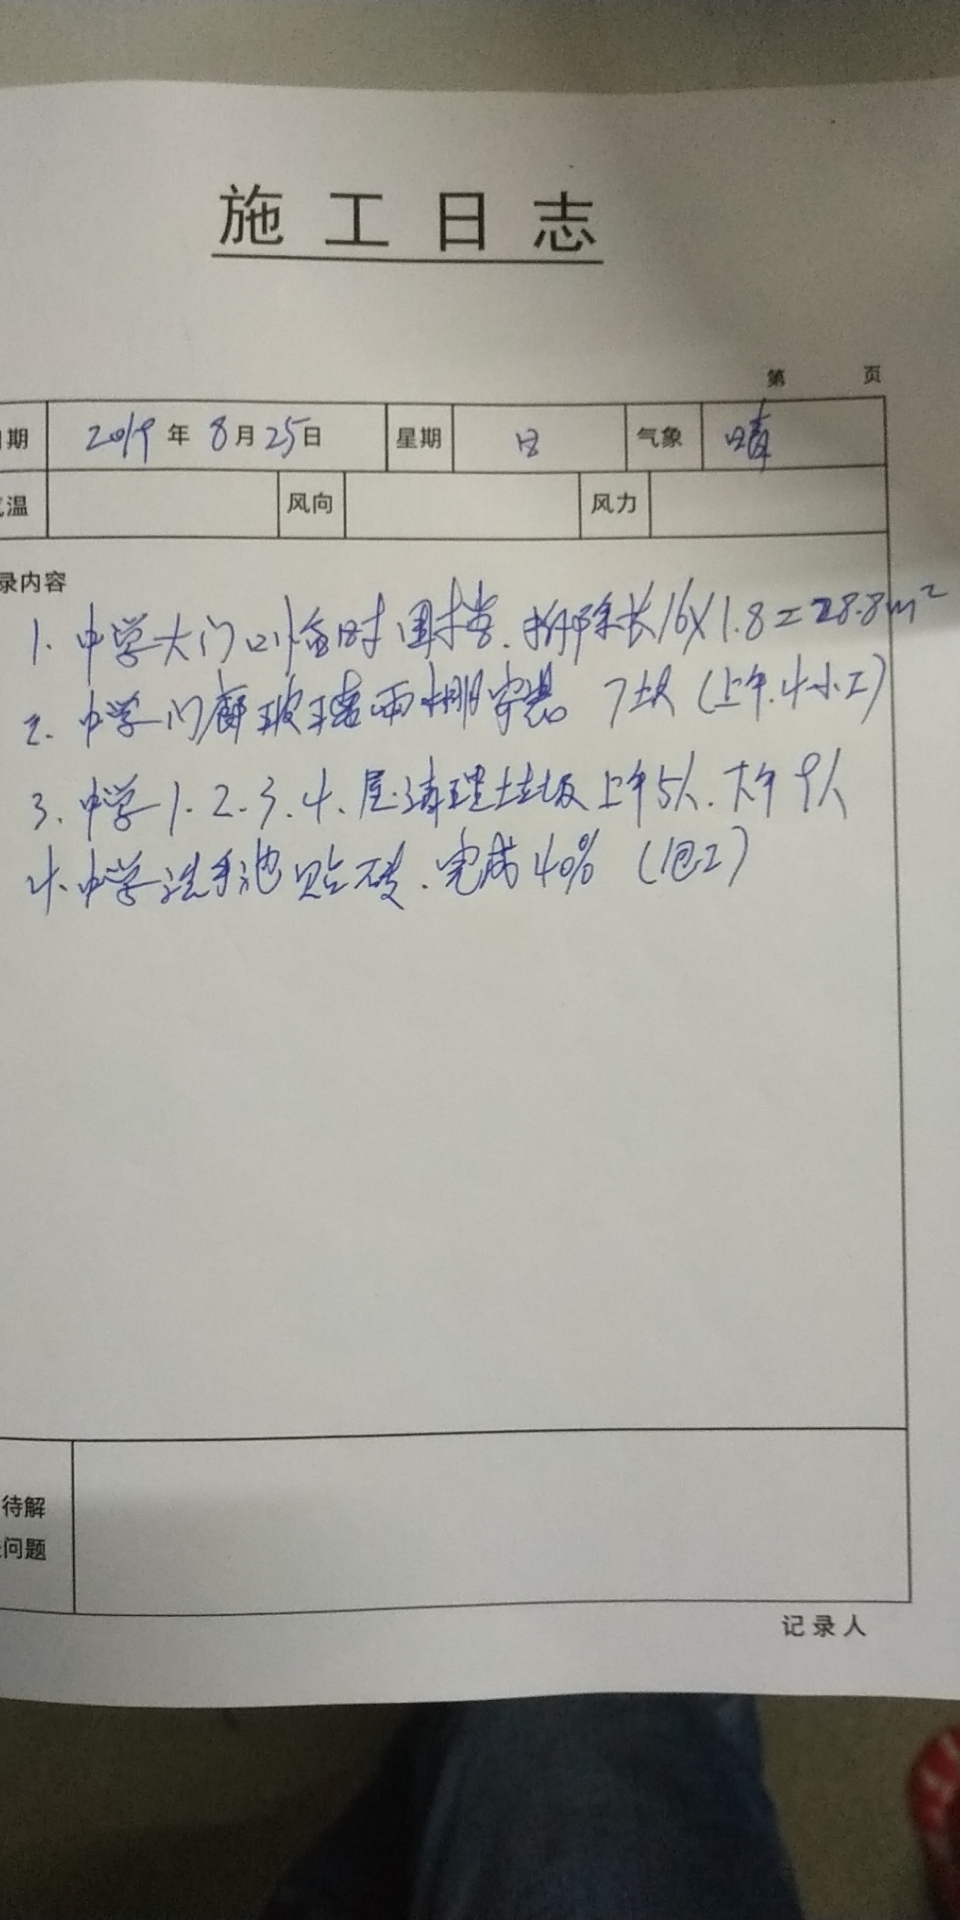 施工日志
第 页
期 2019年8月25日 星期 日 气象 晴
温 风向 风力
录内容
1. 中学大门口临时围挡. 拆除长16X1.8=28.8m²
2. 中学门廊玻璃雨棚安装 7块 (上午.4小工)
3. 中学1.2.3.4.层清理垃圾上午5人.下午9人
4. 中学洗手池贴砖.完成40% (包工)
待解
问题
记录人